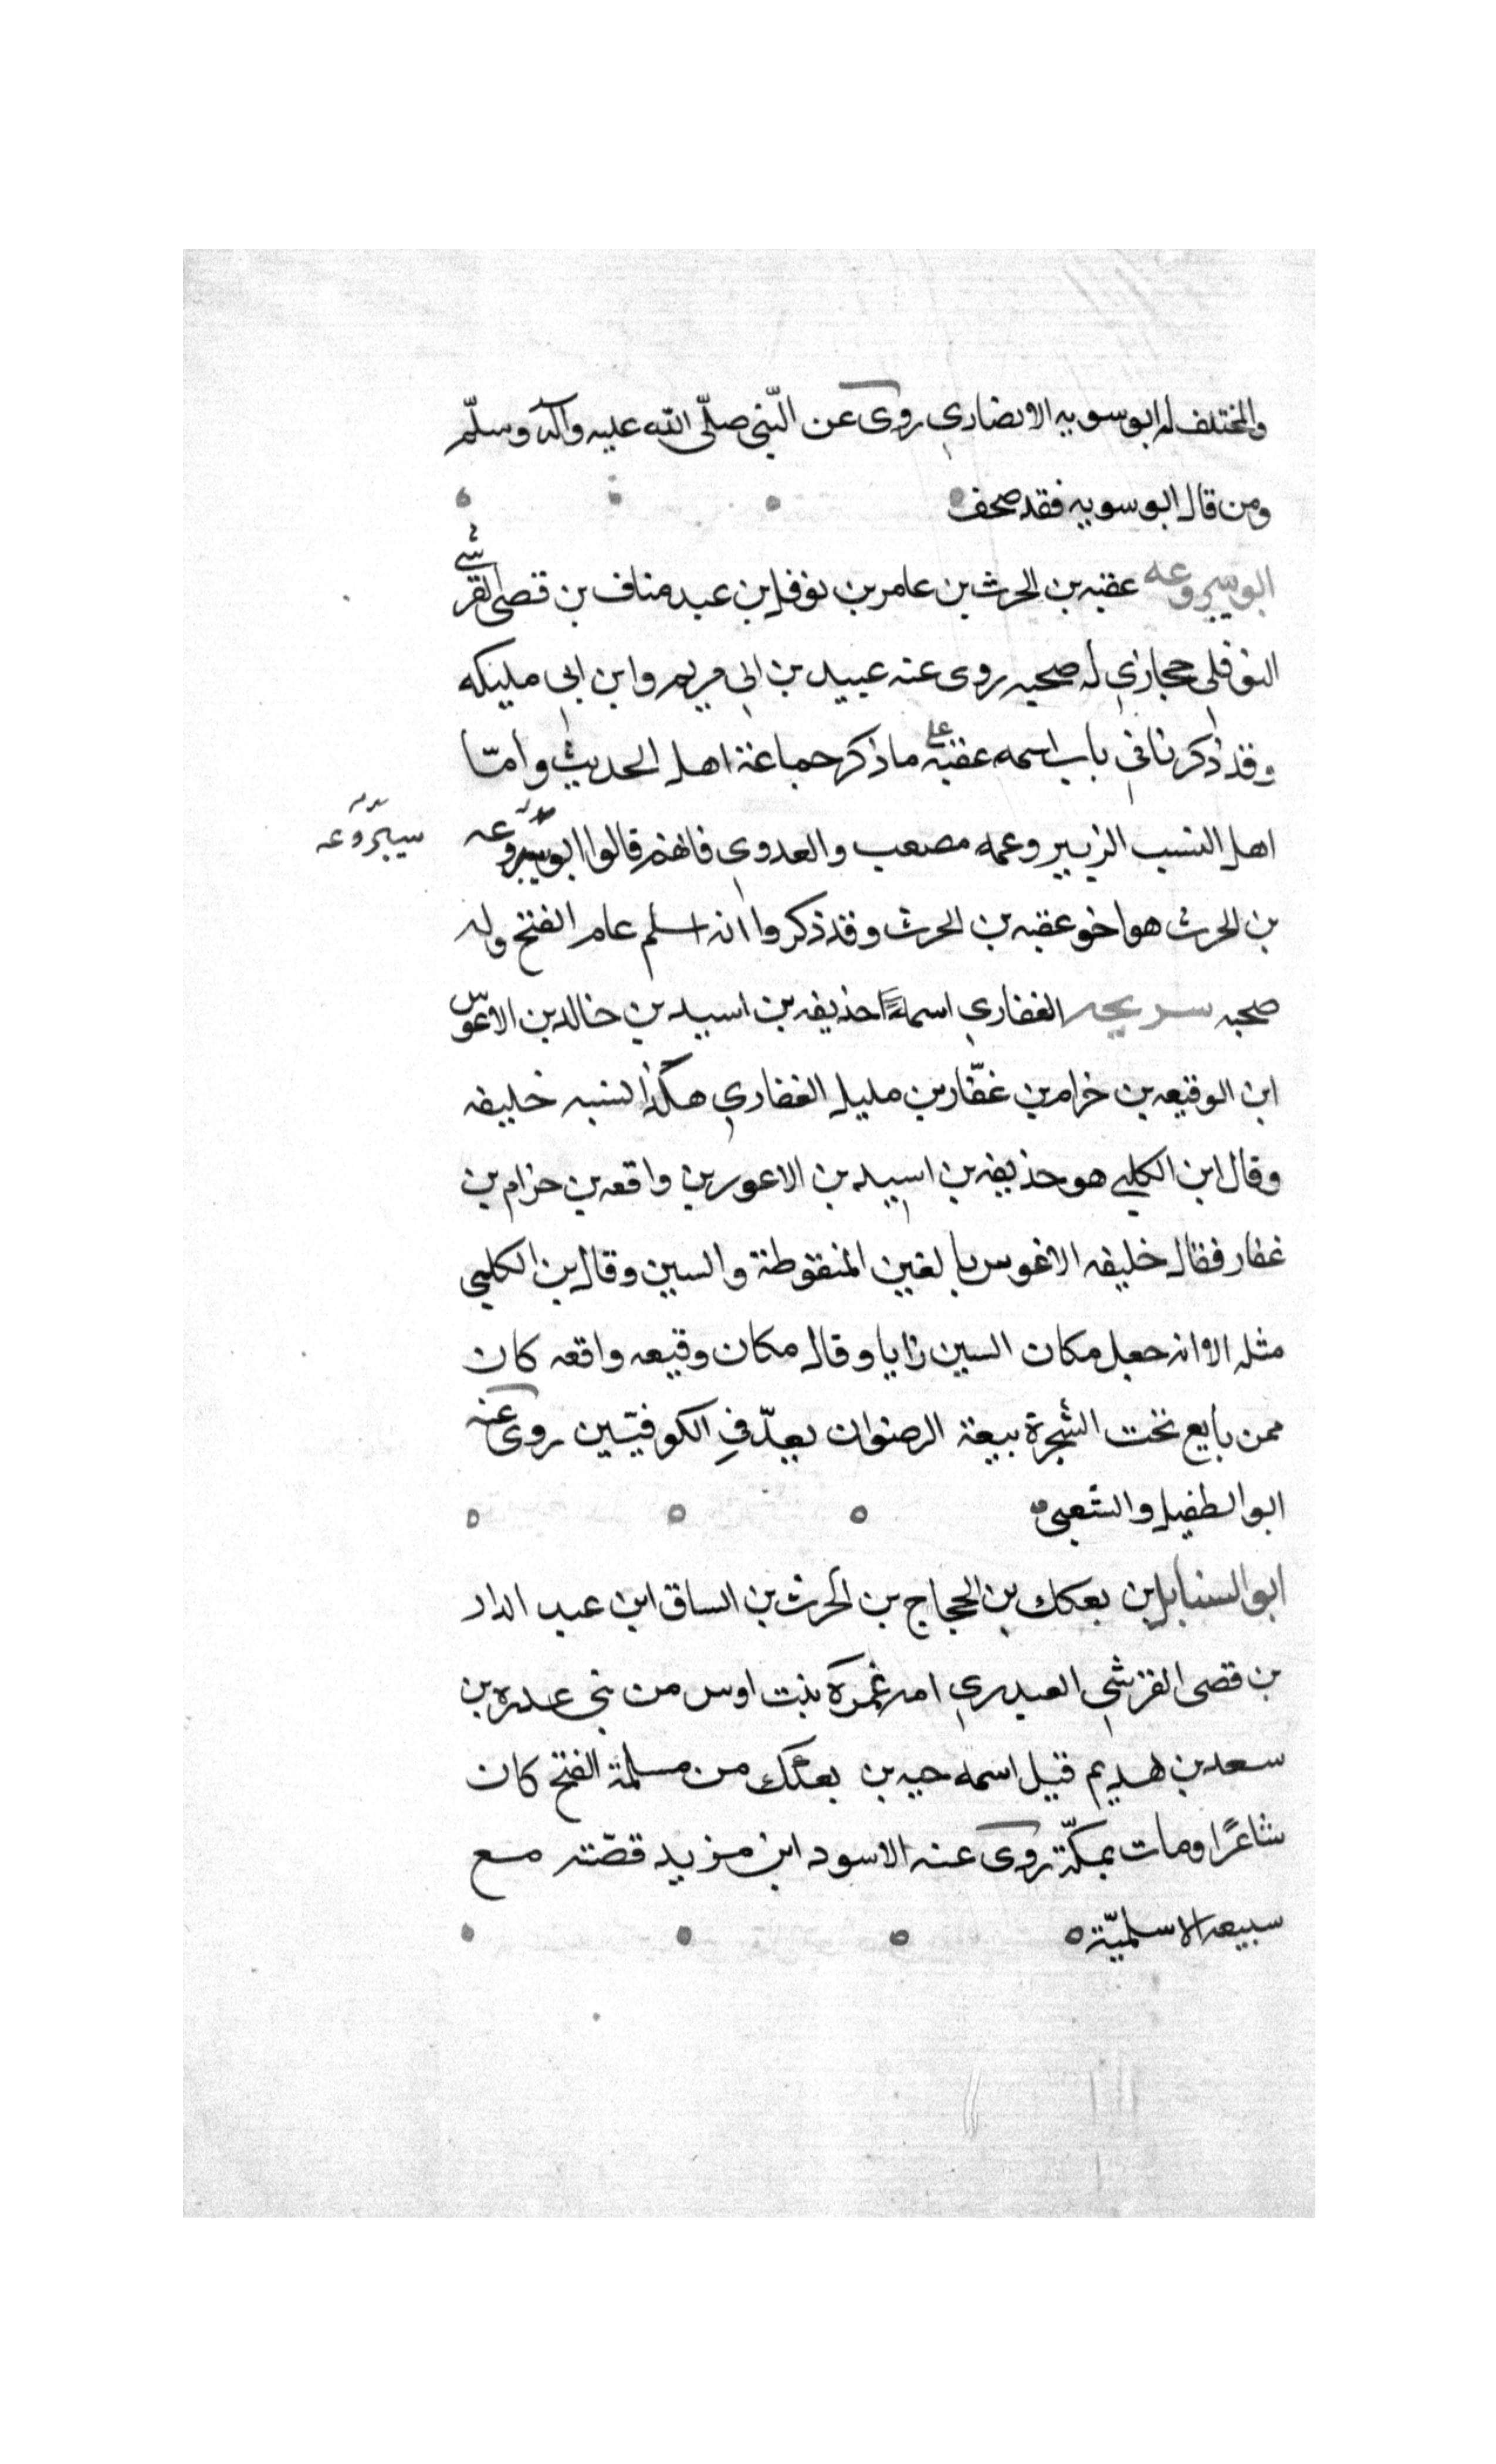 والمختلف له ابو سويه الانصاري روى عن النّبي صلّى الله عليه وآله وسلّم
ومن قال ابو سويه فقد صحف
ابو سروعه عقبه بن الحرث بن عامر بن نوفل بن عبد مناف بن قصى القرشي
النوفلى حجازي له صحبه روى عنه عبيد بن ابي مريم وابن ابى مليكه
وقد ذكرنا في باب اسمه عقبه على ما ذكر جماعة اهل الحديث وأمّا
اهل النسب الزبير وعمه مصعب والعدوى فانهم قالوا ابو سروعه
سروعه
بن الحرث هو اخو عقبه بن الحرث وقد ذكروا انه اسلم عام الفتح وله
صحبه سريحه الغفاري اسمه حذيفه بن اسيد بن خالد بن الاغوس
ابن الوقيعه بن خرام بن غفّار بن مليل الغفاري هكذا نسبه خليفه
وقال ابن الكلبي هو حذيفه بن اسيد بن الاعور بن واقعه بن حزام بن
غفار فقال خليفه الاغوس بالغين المنقوطة والسين وقال بن الكلبي
مثله الا انه جعل مكان السين زايا وقال مكان وقيعه واقعه كان
ممن بايع تحت الشجرة بيعة الرضوان يعدّ في الكوفيّين روى عنه
ابو الطفيل والشعبى
ابو السنابل بن بعكك بن الحجاج بن الحرث بن الساق ابن عبد الدار
بن قصى القرشي العبدري امه عمرة بنت اوس من بني عدره بن
سعد بن هديم قيل اسمه حبه بن بعكك من مسلمة الفتح كان
شاعرًا ومات بمكّة روى عنه الاسود ابن مزيد قصّته مع
سبيعه الاسلميّة